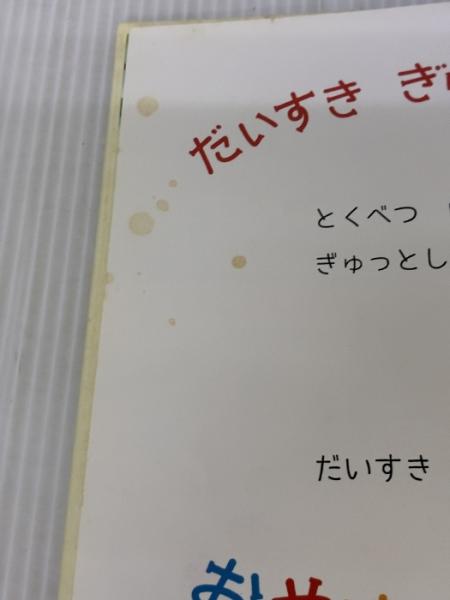 だいすき ぎ
とくべつ
ぎゅっとし
だいすき
おや